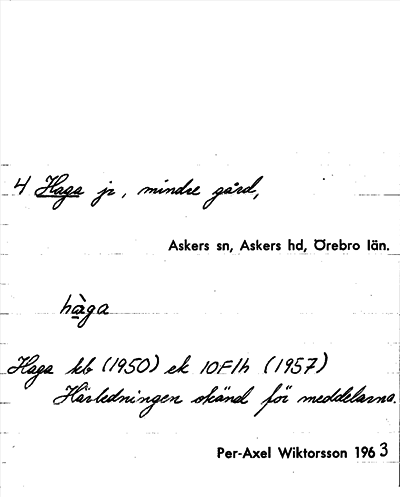 4 Haga jr, mindre gård,
Askers sn, Askers hd, Örebro län.
hàga
Haga kb (1950) ek 10F1h (1957)
Härledningen okänd för meddelarna.
Per-Axel Wiktorsson 1963